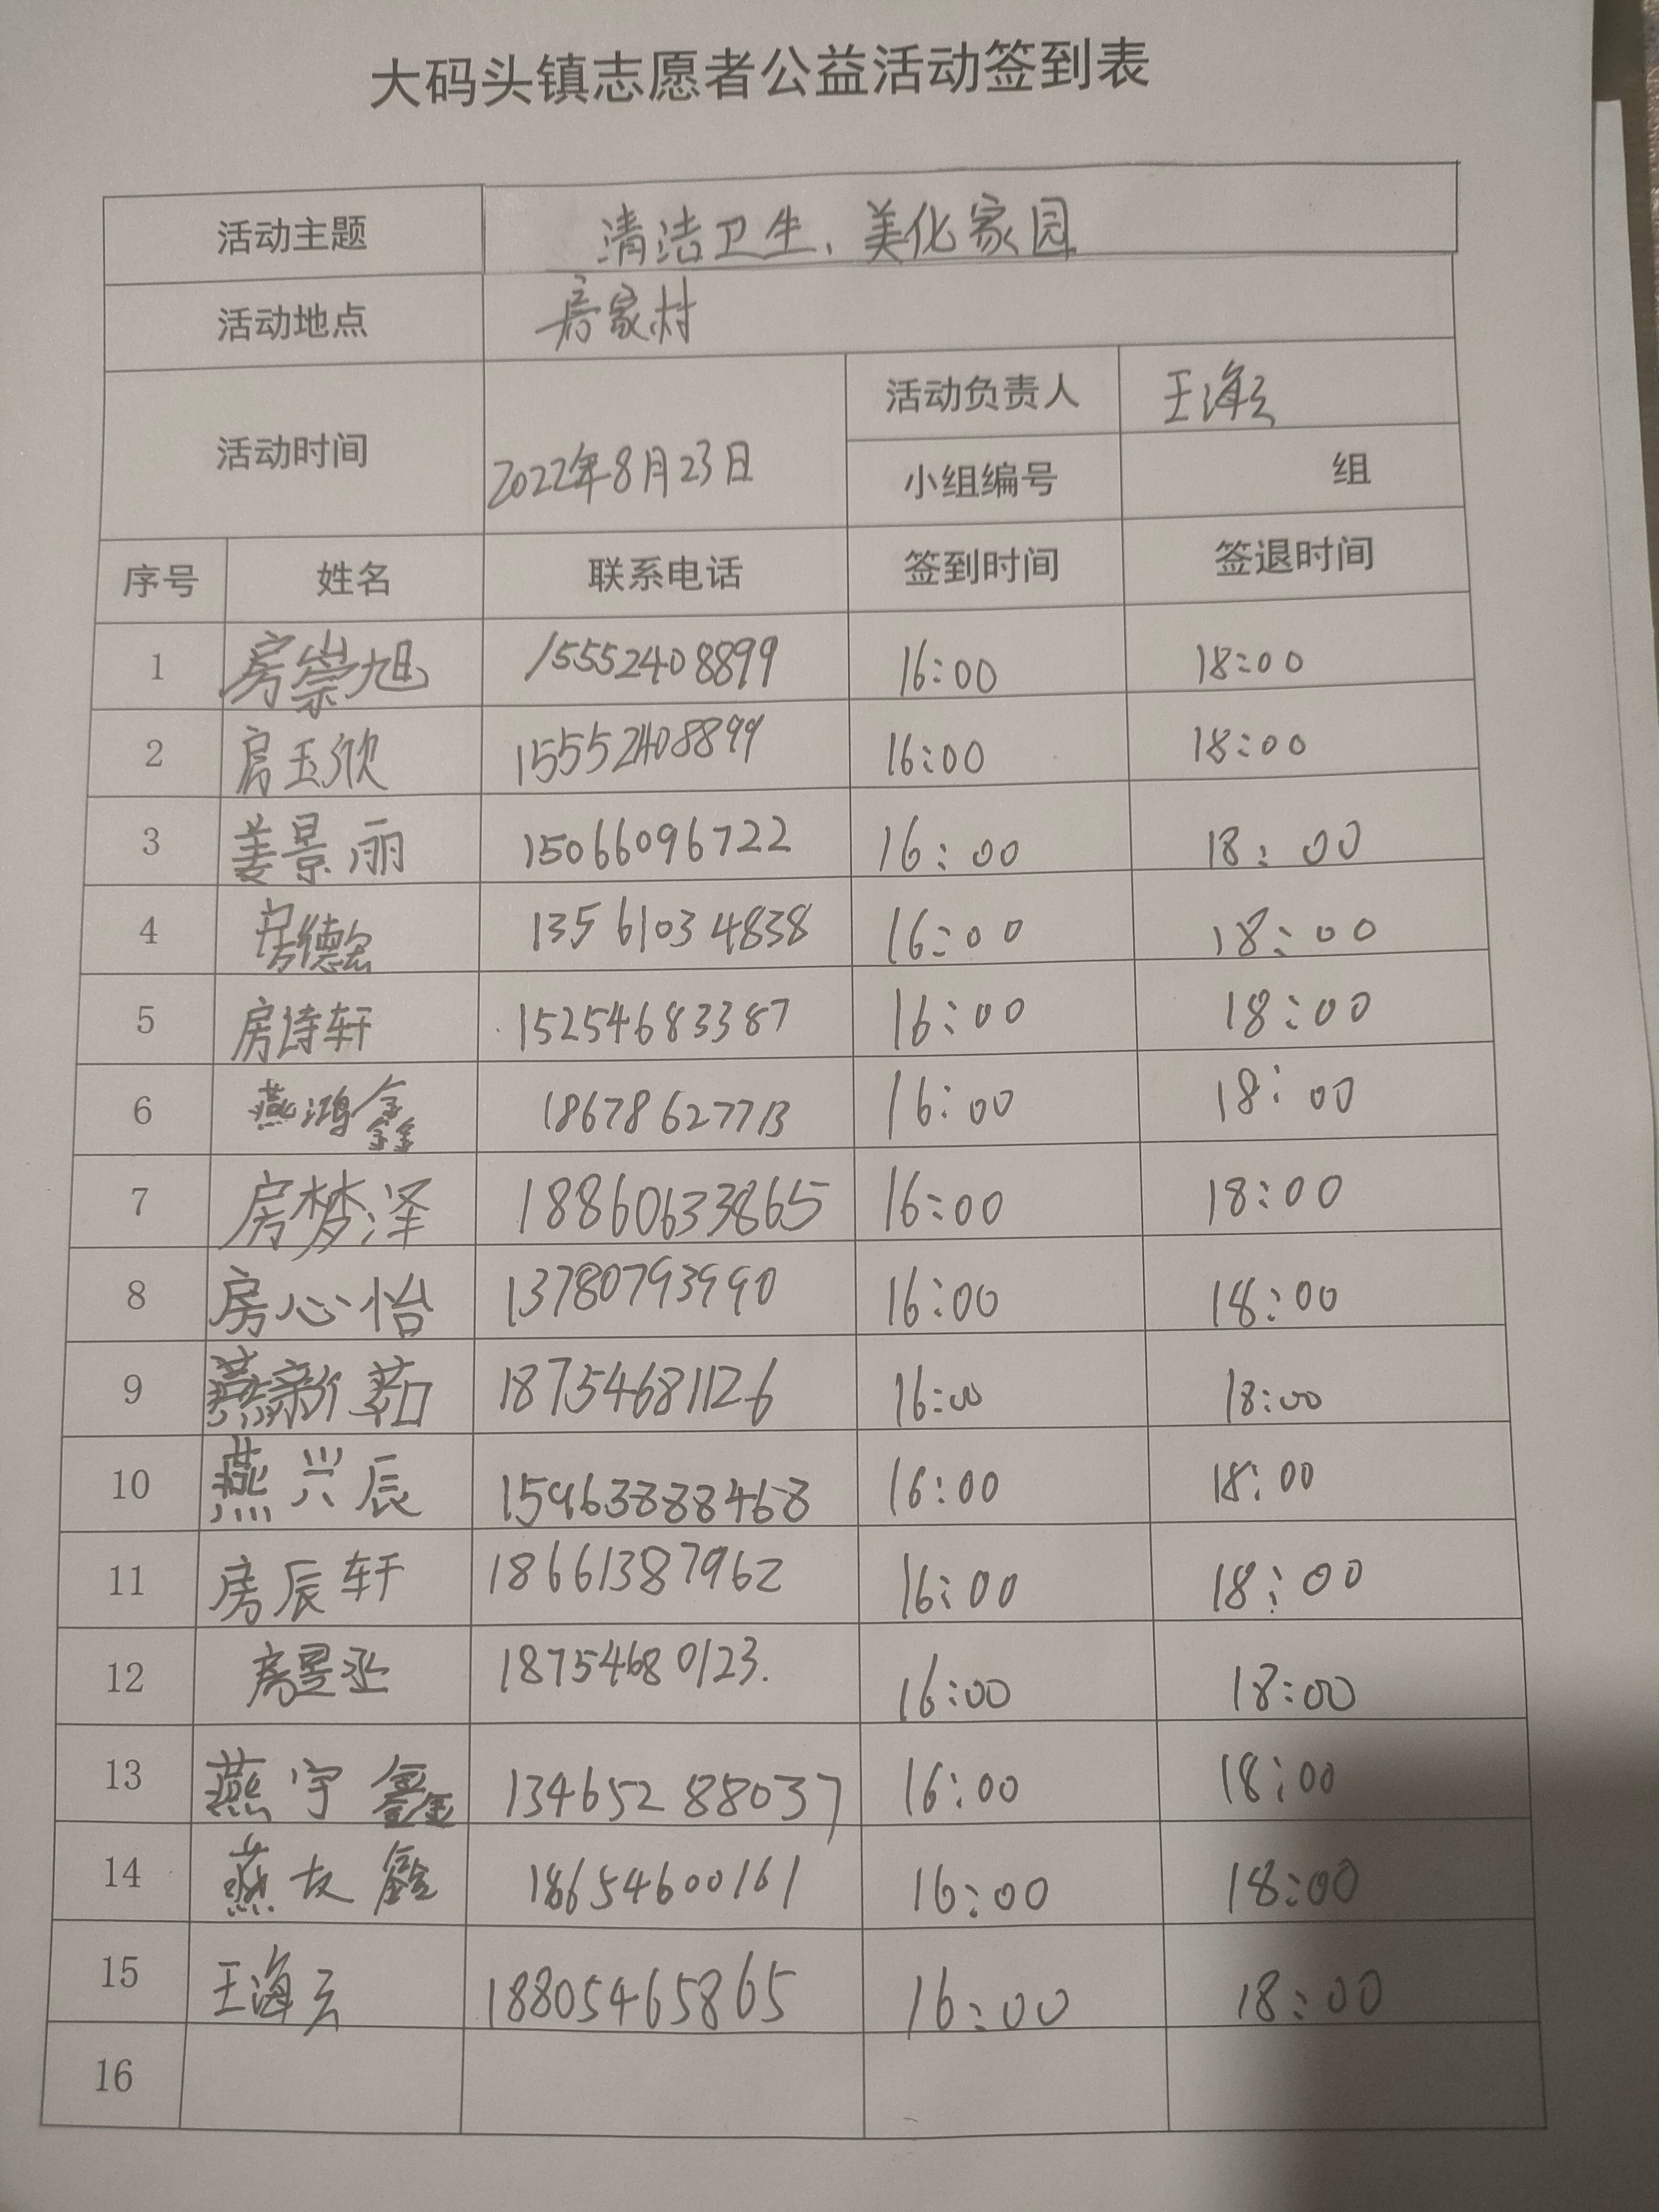 大码头镇志愿者公益活动签到表
活动主题 清洁卫生、美化家园
活动地点 房家村
活动时间 2022年8月23日 活动负责人 王海云
小组编号 组
序号 姓名 联系电话 签到时间 签退时间
1 房崇旭 15552408899 16:00 18:00
2 房玉欣 15552408899 16:00 18:00
3 姜景丽 15066096722 16:00 18:00
4 房德 13561034838 16:00 18:00
5 房诗轩 15254683387 16:00 18:00
6 燕鸿鑫 18678627713 16:00 18:00
7 房梦泽 18860633865 16:00 18:00
8 房心怡 13780793990 16:00 18:00
9 燕新茹 18754681126 16:00 18:00
10 燕兴辰 15963888468 16:00 18:00
11 房辰轩 18661387962 16:00 18:00
12 房昱丞 18754680123. 16:00 18:00
13 燕宇鑫 13465288037 16:00 18:00
14 燕友鑫 18654600161 16:00 18:00
15 王海云 18805465865 16:00 18:00
16